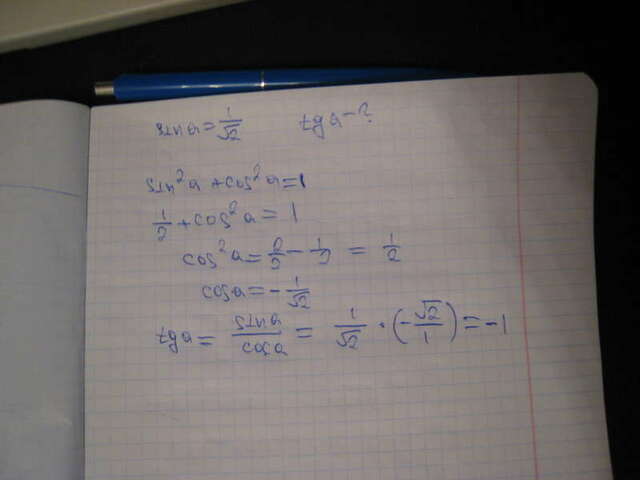 sin a = 1/√2 tg a - ?
sin² a + cos² a = 1
1/2 + cos² a = 1
cos² a = 2/2 - 1/2 = 1/2
cos a = - 1/√2
tg a = sin a / cos a = 1/√2 · (- √2/1) = -1